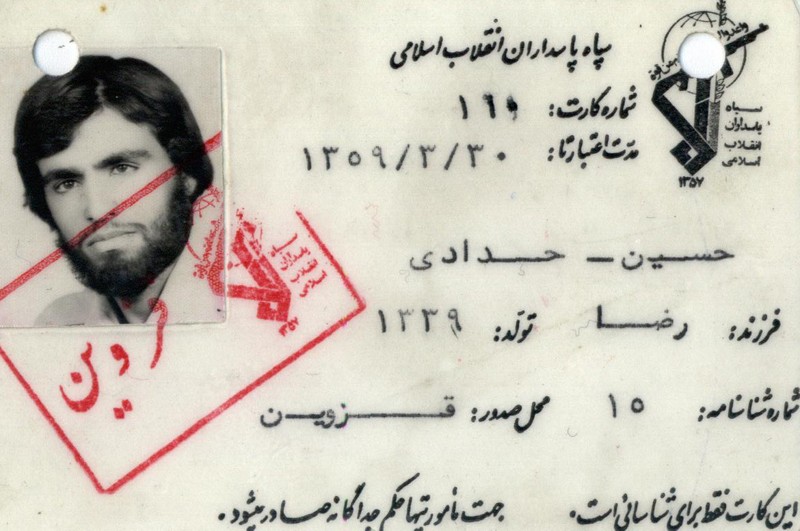 سپاه پاسداران انقلاب اسلامی
شماره کارت: ۱۶۰
مدت اعتبار تا: ۱۳۵۹/۳/۳۰
سپاه
پاسداران
انقلاب
اسلامی
۱۳۵۷
حسین – حدادی
فرزند: رضا تولد: ۱۳۳۹
شماره شناسنامه: ۱۵ محل صدور: قزوین
این کارت فقط برای شناسائی است. جهت مأموریتها حکم جداگانه صادر میشود.
قزوین